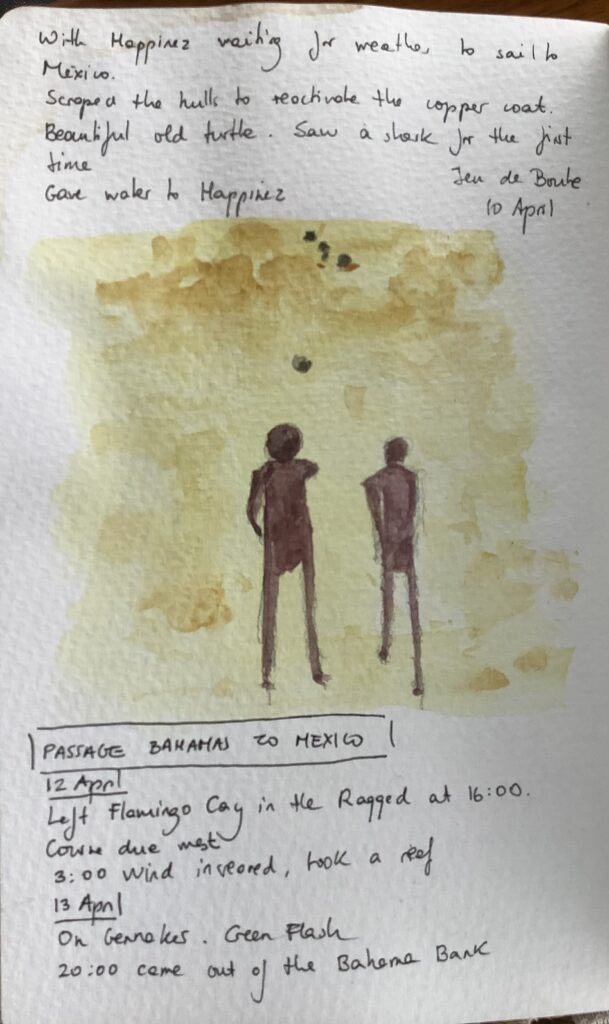 With Happinez waiting for weather to sail to
Mexico.
Scraped the hulls to reactivate the copper coat.
Beautiful old turtle. Saw a shark for the first
time
Jeu de Boule
Gave water to Happinez
10 April
PASSAGE BAHAMAS TO MEXICO
12 April
Left Flamingo Cay in the Ragged at 16:00.
Course due west
3:00 Wind increased, took a reef
13 April
On Gennaker. Green Flash
20:00 came out of the Bahama Bank